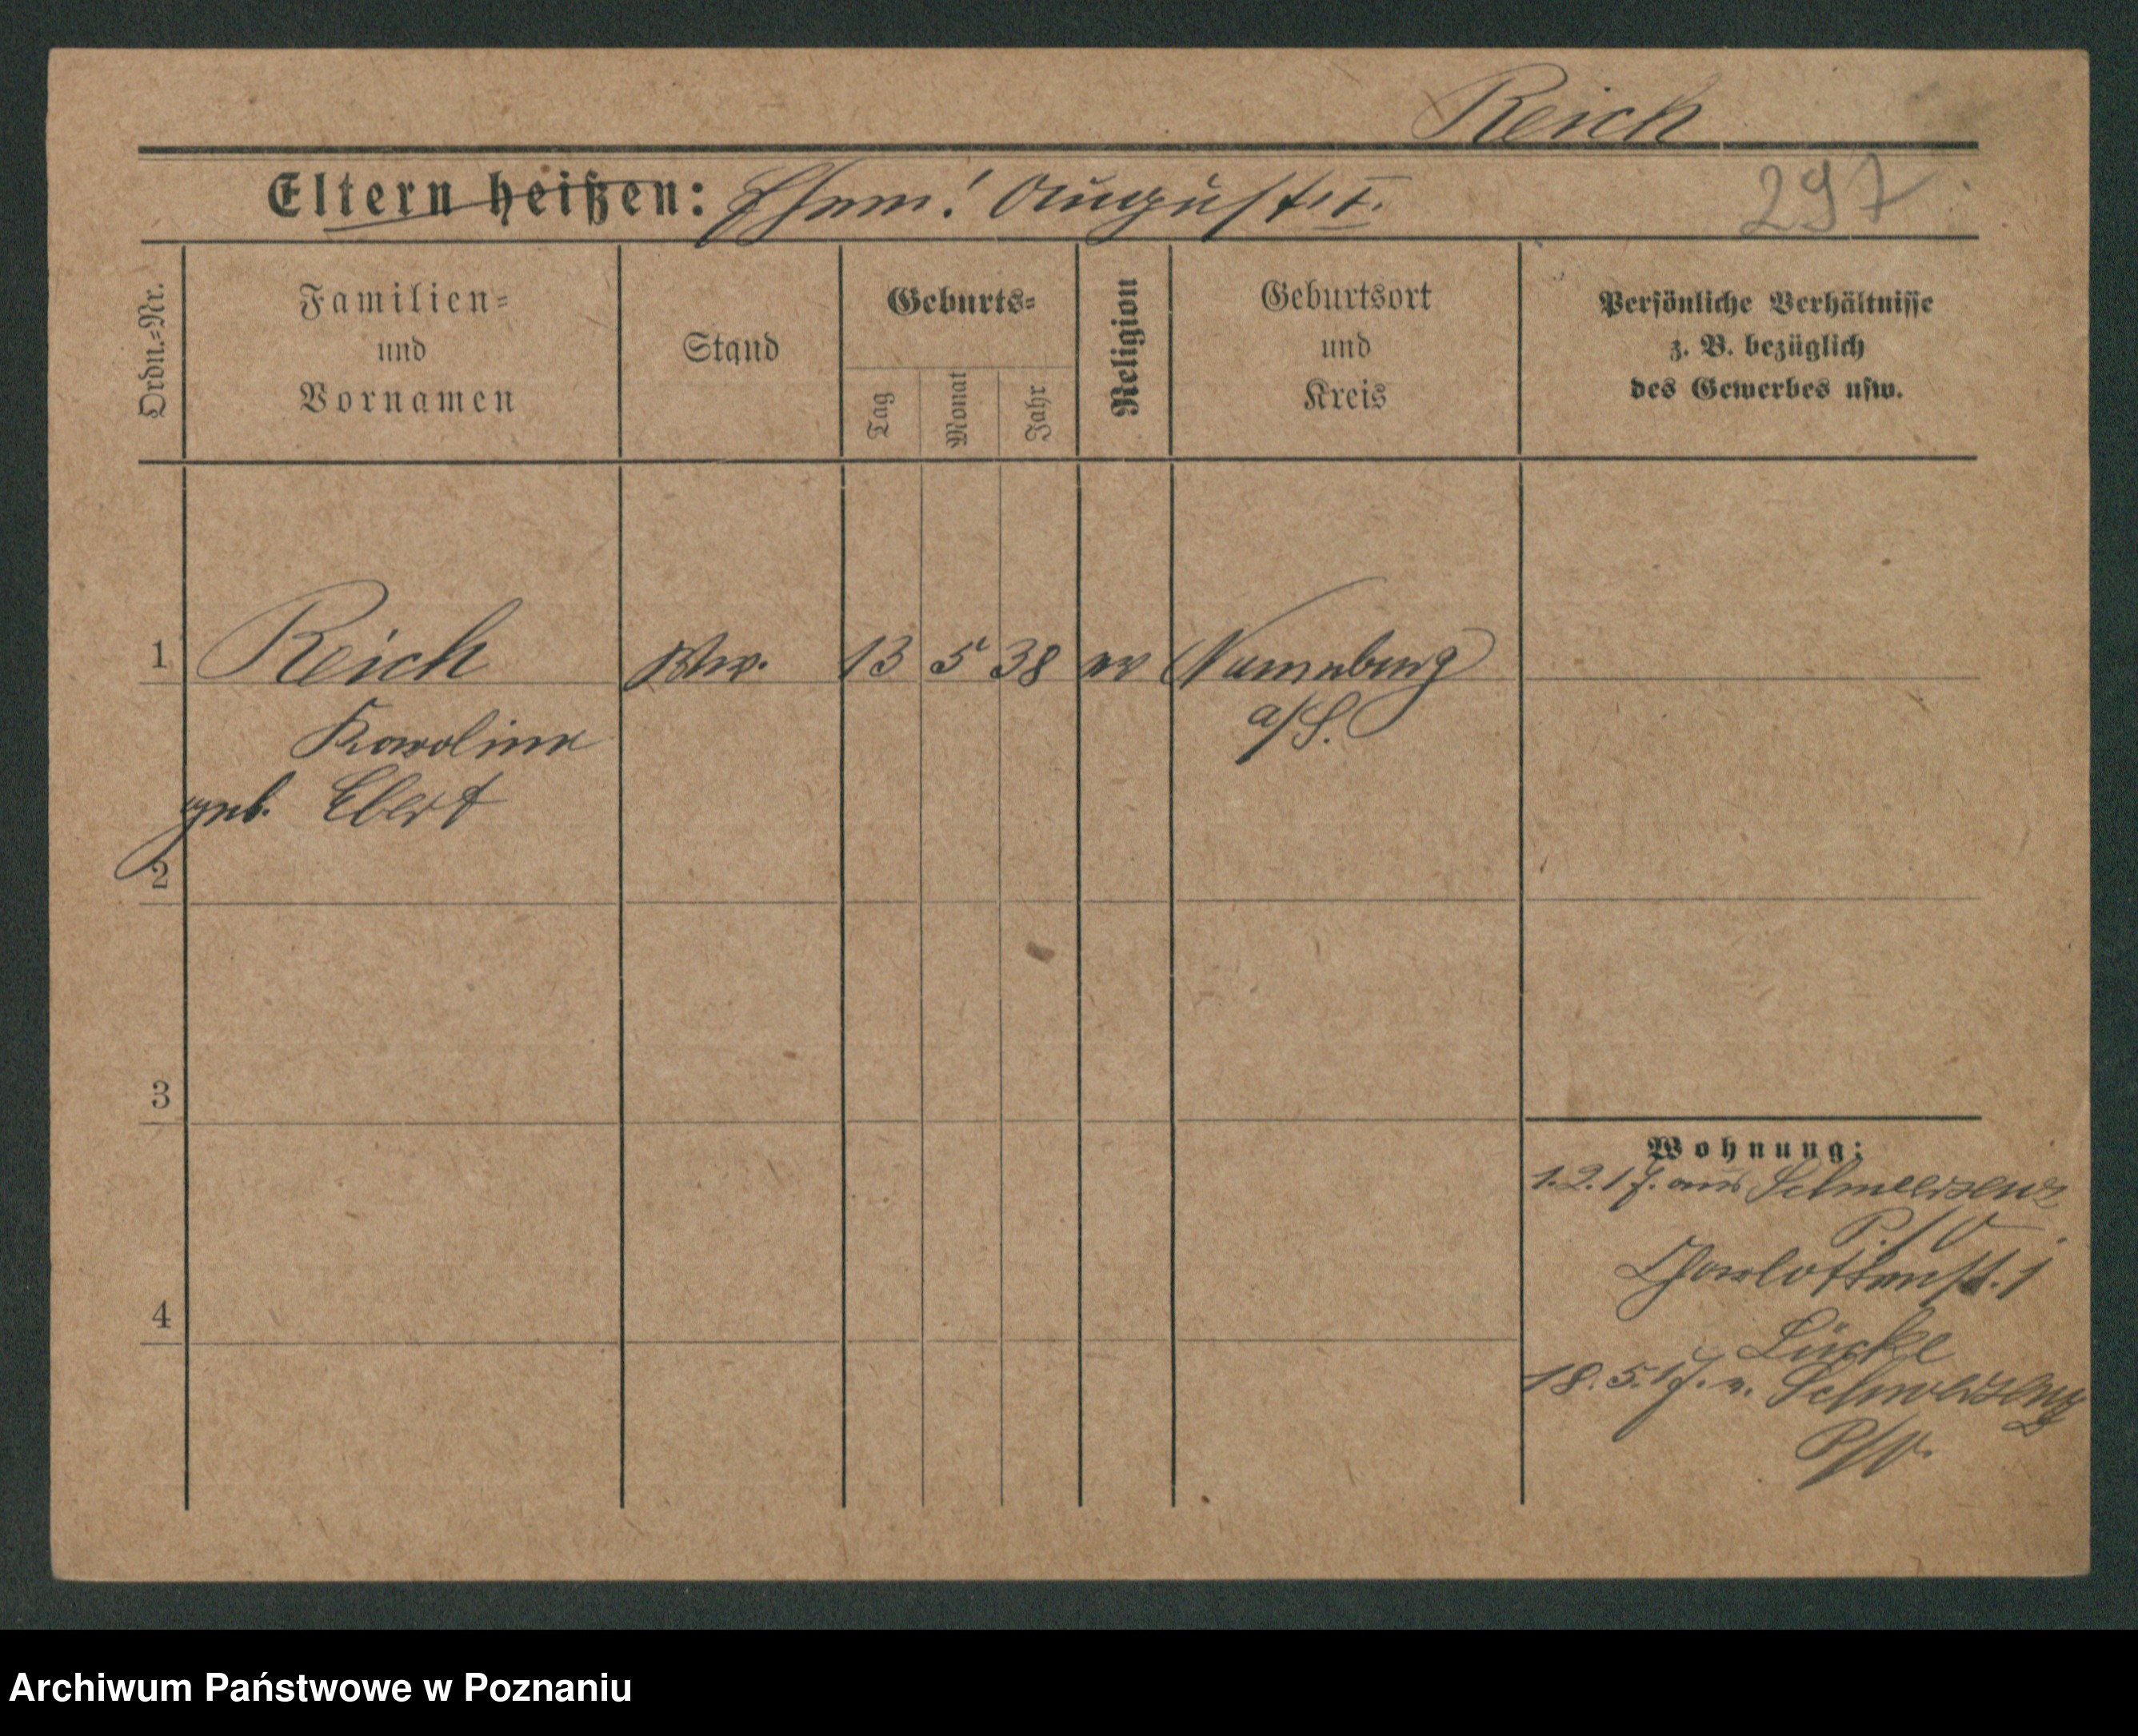 Reich
Eltern heißen: Ehem! August I.
297
Ordn.=Nr.
Familien=
und
Vornamen
Stand
Geburts=
Tag
Monat
Jahr
Religion
Geburtsort
und
Kreis
Persönliche Verhältnisse
z. B. bezüglich
des Gewerbes usw.
1 Reich Ww. 13 5 38 ev Naumburg
Karoline a/S.
geb. Ebert
2
3
4
Wohnung:
1.2.17. aus Schwersenz
P./O.
Charlottenst. 1
Lücke
18.5.17. n. Schwersenz
P/O.
Archiwum Państwowe w Poznaniu